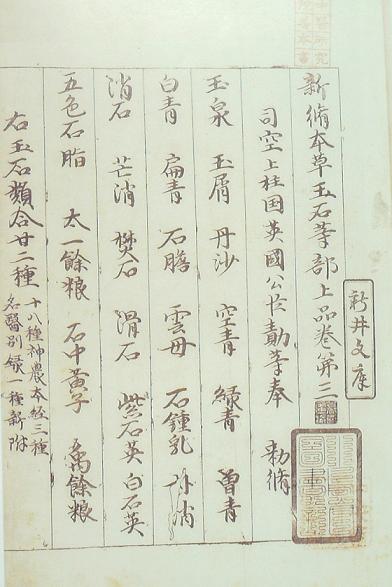 新脩本草玉石等部上品卷第三
司空上柱国英國公臣勣等奉 勅脩
玉泉 玉屑 丹沙 空青 緑青 曽青
白青 扁青 石膽 雲母 石鍾乳 朴消
消石 芒消 樊石 滑石 紫石英 白石英
五色石脂 太一餘粮 石中黄子 禹餘粮
右玉石類合廿二種 十八種神農本經三種
名醫別録一種新附
新井文庫